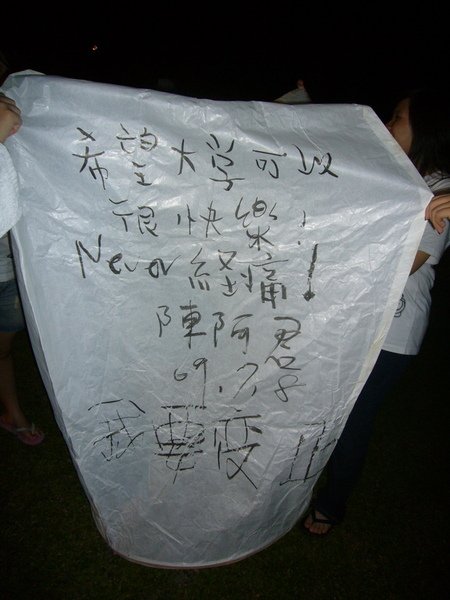 希望大学可以
很快樂!
Never 経痛!
陳阿君
09.7.8
要変正